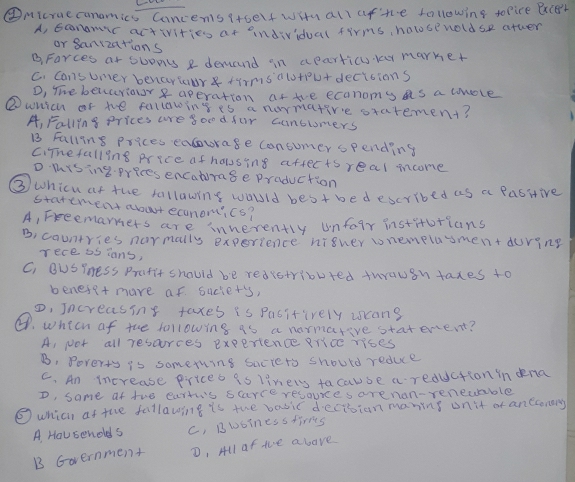 ① Microeconomics Concerns itself with all of the following topice Except
A, Economic activities at individual firms, households & other
or ganizations
B, Forces at supply & demand in a particular market
C. Consumer behaviour & firms output decisions
D, The behaviour & operation of the economy as a whole
② which of the following is a normative statement?
A, Falling Prices are good for consumers
B Falling Prices encourage consumer spending
C. The falling Price of housing affects real income
D Rising Prices encourage Production
③ which of the following would best be described as a Positive
statement about economics?
A, Free markets are inherently unfair institutions
B, countries normally experience higher unemployment during
rece ss ions,
C, Business Profit should be redistributed through taxes to
benefit more of society,
D, Increasing taxes is Positively wrong
④. which of the following is a normative statement?
A, not all resources experience Price rises
B, Poverty is something society should reduce
C. An increase Prices is linery to cause a reduction in dema
D. some of the earth's scarce resources are non-renewable
⑤ which of the following is the basic decision making unit of an economy
A Households C, Business firms
B Government D, All of the above